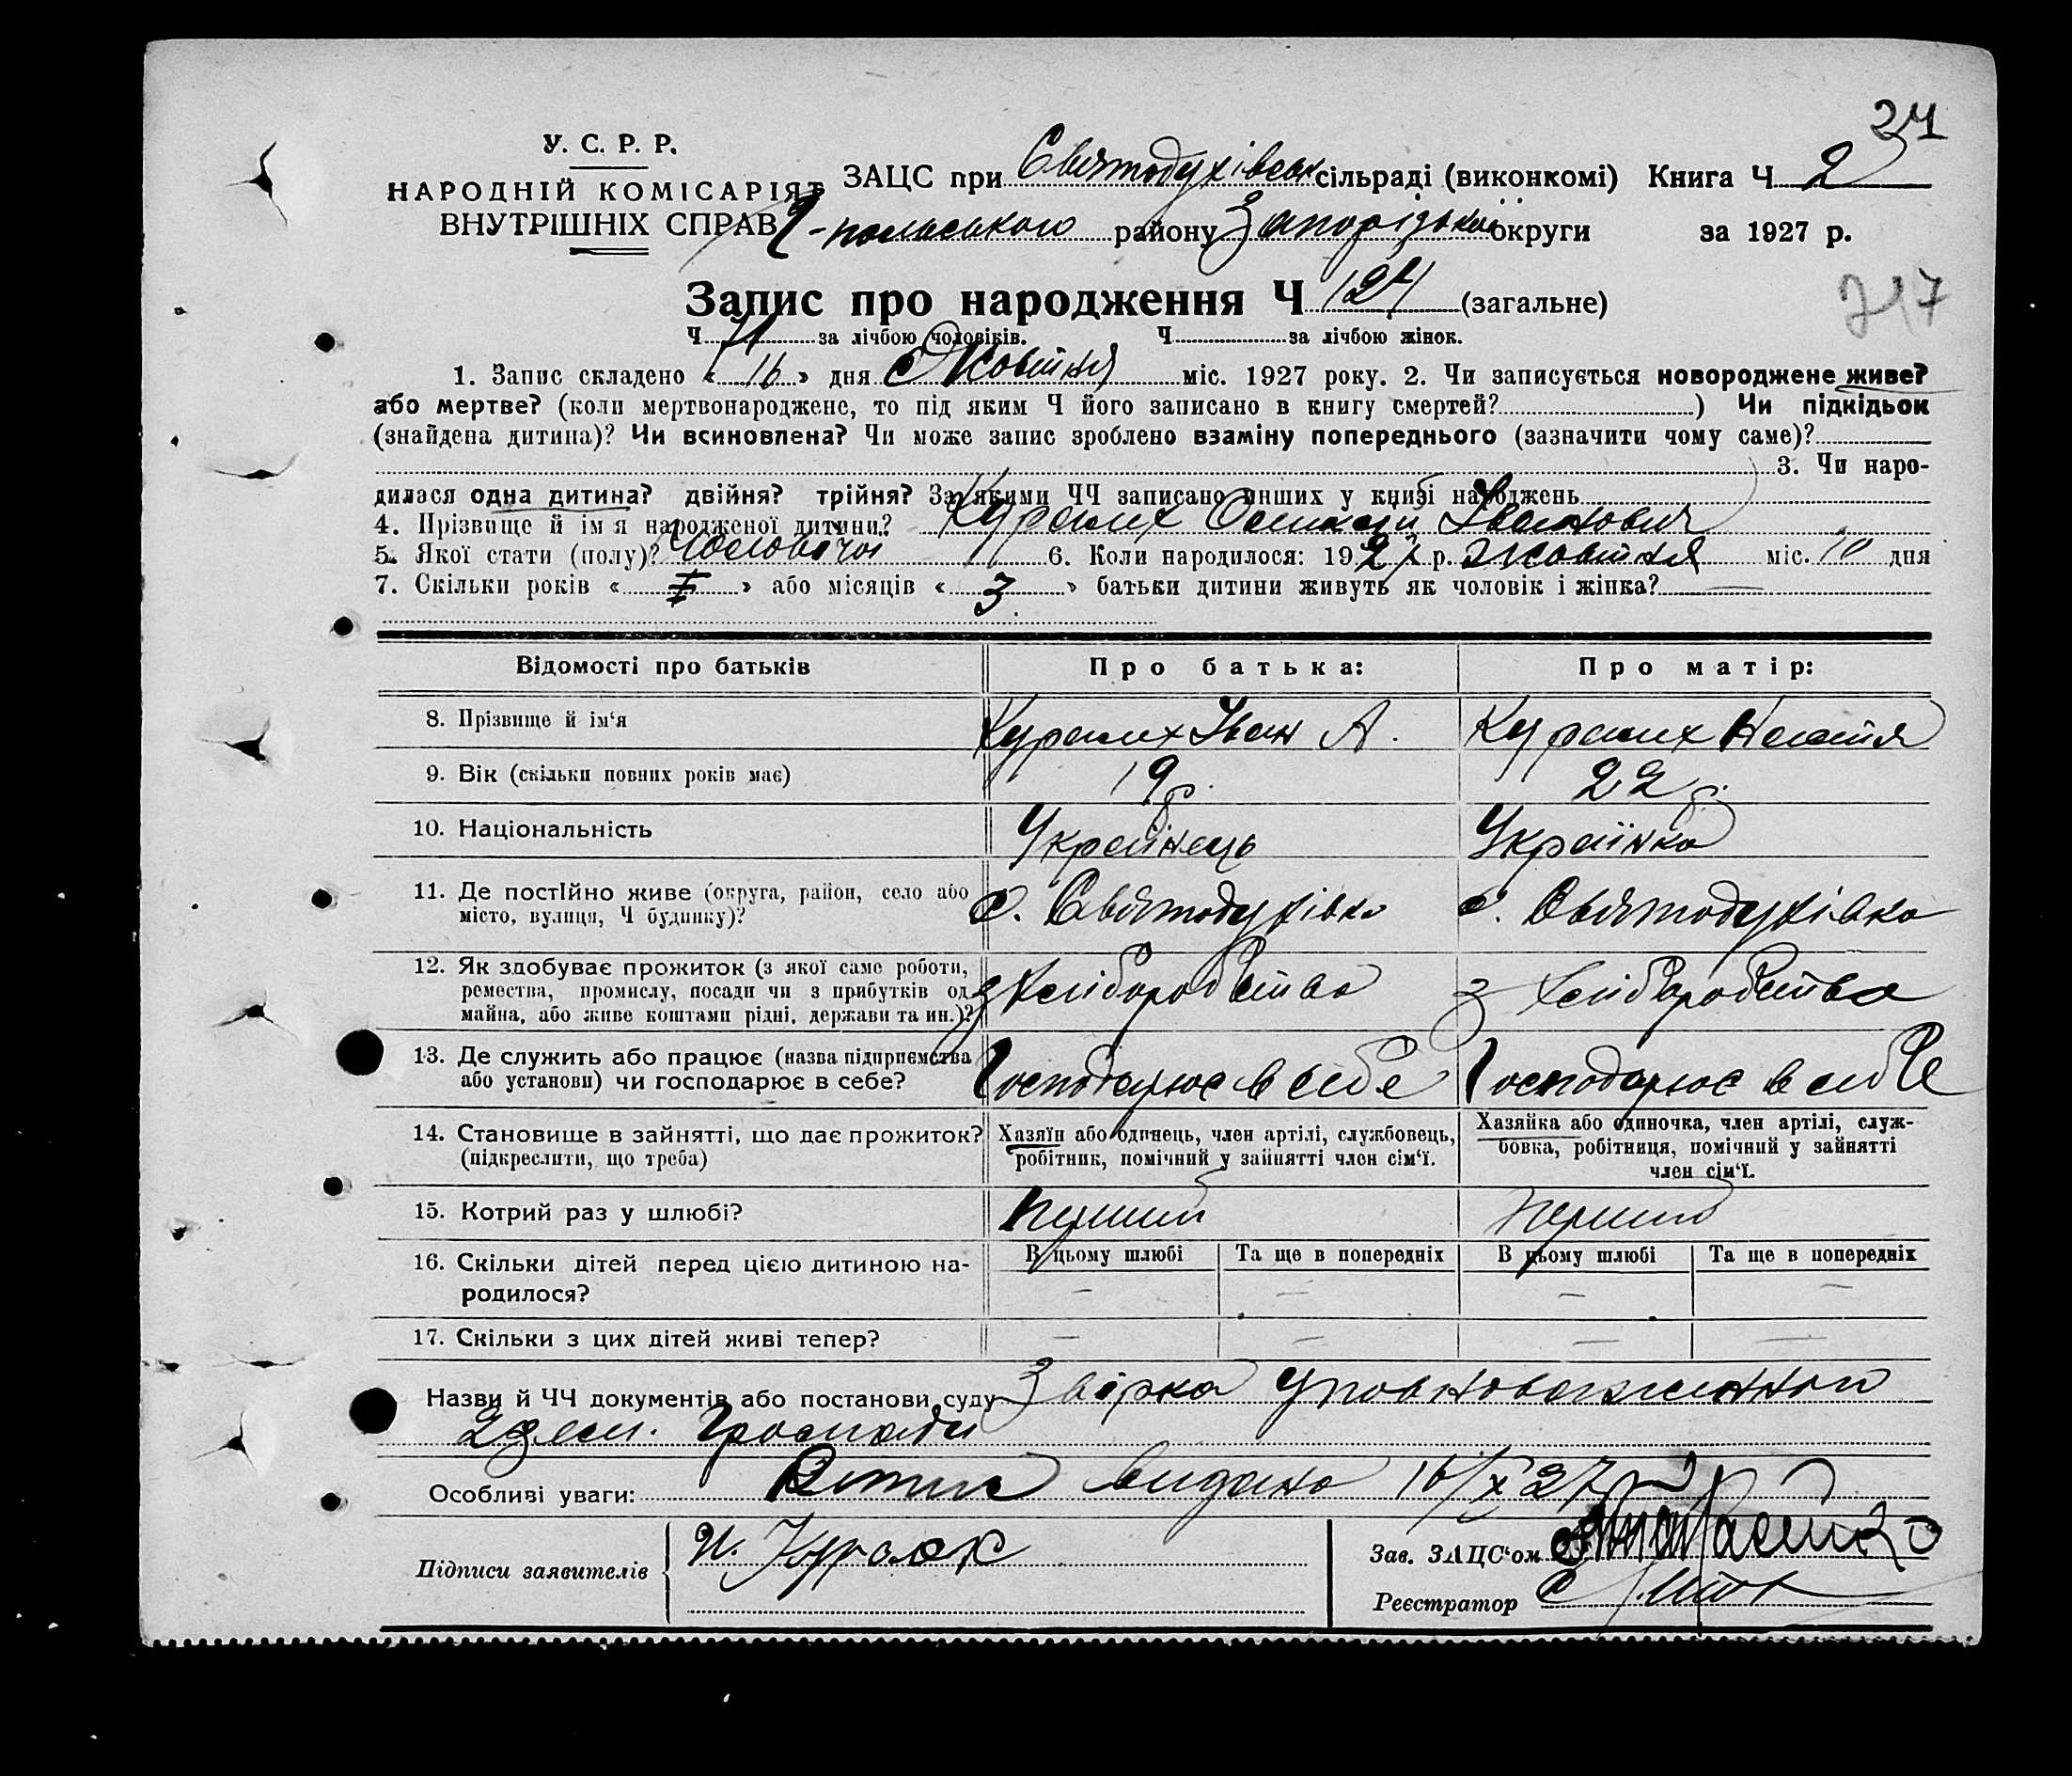 24
У. С. Р. Р.
НАРОДНІЙ КОМІСАРІЯТ
ВНУТРІШНІХ СПРАВ
ЗАЦС при Святодухівськ сільраді (виконкомі) Книга Ч 2
польського району Запорізької округи за 1927 р.
Запис про народження Ч 124 (загальне)
Ч 71 за лічбою чоловіків. Ч за лічбою жінок.
1. Запис складено « 16 » дня Жовтня міс. 1927 року. 2. Чи записується новороджене живе?
або мертве? (коли мертвонароджене, то під яким Ч його записано в книгу смертей? ) Чи підкідьок
(знайдена дитина)? Чи всиновлена? Чи може запис зроблено взаміну попереднього (зазначити чому саме)?
3. Чи наро-
дилася одна дитина? двійня? трійня? За якими ЧЧ записано инших у книзі народжень
4. Прізвище й ім'я народженої дитини? Іванович
5. Якої стати (полу)? Чоловічої 6. Коли народилося: 1927 р. жовтня міс. 10 дня
7. Скільки років « I » або місяців « 3 » батьки дитини живуть як чоловік і жінка? —
Відомості про батьків
Про батька:
Про матір:
8. Прізвище й ім'я
Іван А.
Настя
9. Вік (скільки повних років має)
19 р.
22 р.
10. Національність
Українець
Українка
11. Де постійно живе (округа, район, село або
місто, вулиця, Ч будинку)?
с. Святодухівка
с. Святодухівка
12. Як здобуває прожиток (з якої саме роботи,
ремества, промислу, посади чи з прибутків од
майна, або живе коштами рідні, держави та ин.)?
з хліборобства
з хліборобства
13. Де служить або працює (назва підприємства
або установи) чи господарює в себе?
Господарює в себе
Господарює в себе
14. Становище в зайнятті, що дає прожиток?
(підкреслити, що треба)
Хазяїн або одинець, член артілі, службовець,
робітник, помічний у зайнятті член сім'ї.
Хазяйка або одиночка, член артілі, служ-
бовка, робітниця, помічний у зайнятті
член сім'ї.
15. Котрий раз у шлюбі?
перший
перший
16. Скільки дітей перед цією дитиною на-
родилося?
В цьому шлюбі Та ще в попередніх В цьому шлюбі Та ще в попередніх
— — — —
17. Скільки з цих дітей живі тепер?
— — — —
Назви й ЧЧ документів або постанови суду Звірка уповноваженного
2 зем. Громади
Особливі уваги: Витис видано 16/X 27
Підписи заявителів
И. Зав. ЗАЦС'ом
Реєстратор